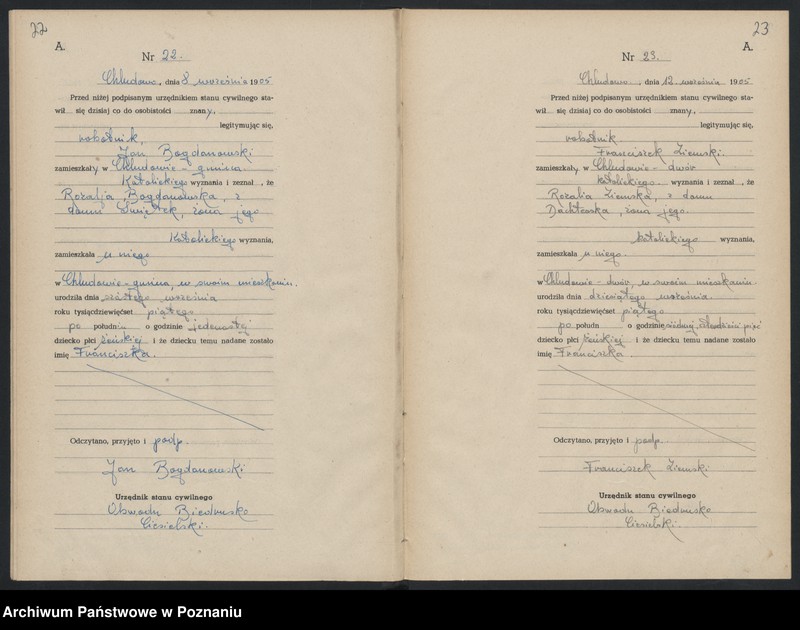 22
A.
Nr 22.
Chludowo, dnia 8 września 1905
Przed niżej podpisanym urzędnikiem stanu cywilnego sta-
wił się dzisiaj co do osobistości znany,
legitymując się,
robotnik,
Jan Bogdanowski
zamieszkały w Chludowie - gmina
Katolickiego wyznania i zeznał , że
Rozalja Bogdanowska, z
domu żona jego
Katolickiego wyznania,
zamieszkała u niego
w Chludowie - gmina, w swoim mieszkaniu,
urodziła dnia szóstego września
roku tysiącdziewięćset piątego
po południu o godzinie jedenastej
dziecko płci żeńskiej i że dziecku temu nadane zostało
imię Franciszka.
Odczytano, przyjęto i podp.
Jan Bogdanowski
Urzędnik stanu cywilnego
Obwodu Biedrusko
Ciesielski.
23
A.
Nr 23.
Chludowo, dnia 12 września 1905
Przed niżej podpisanym urzędnikiem stanu cywilnego sta-
wił się dzisiaj co do osobistości znany,
legitymując się,
robotnik
Franciszek Ziemski.
zamieszkały w Chludowie - dwór
katolickiego wyznania i zeznał , że
Rozalia Ziemska, z domu
żona jego.
katolickiego wyznania,
zamieszkała u niego.
w Chludowie - dwór, w swoim mieszkaniu
urodziła dnia dziewiątego września
roku tysiącdziewięćset piątego
po połudn o godzinie siódmej pięć
dziecko płci żeńskiej i że dziecku temu nadane zostało
imię Franciszka.
Odczytano, przyjęto i podp.
Franciszek Ziemski
Urzędnik stanu cywilnego
Obwodu Biedrusko
Ciesielski.
Archiwum Państwowe w Poznaniu